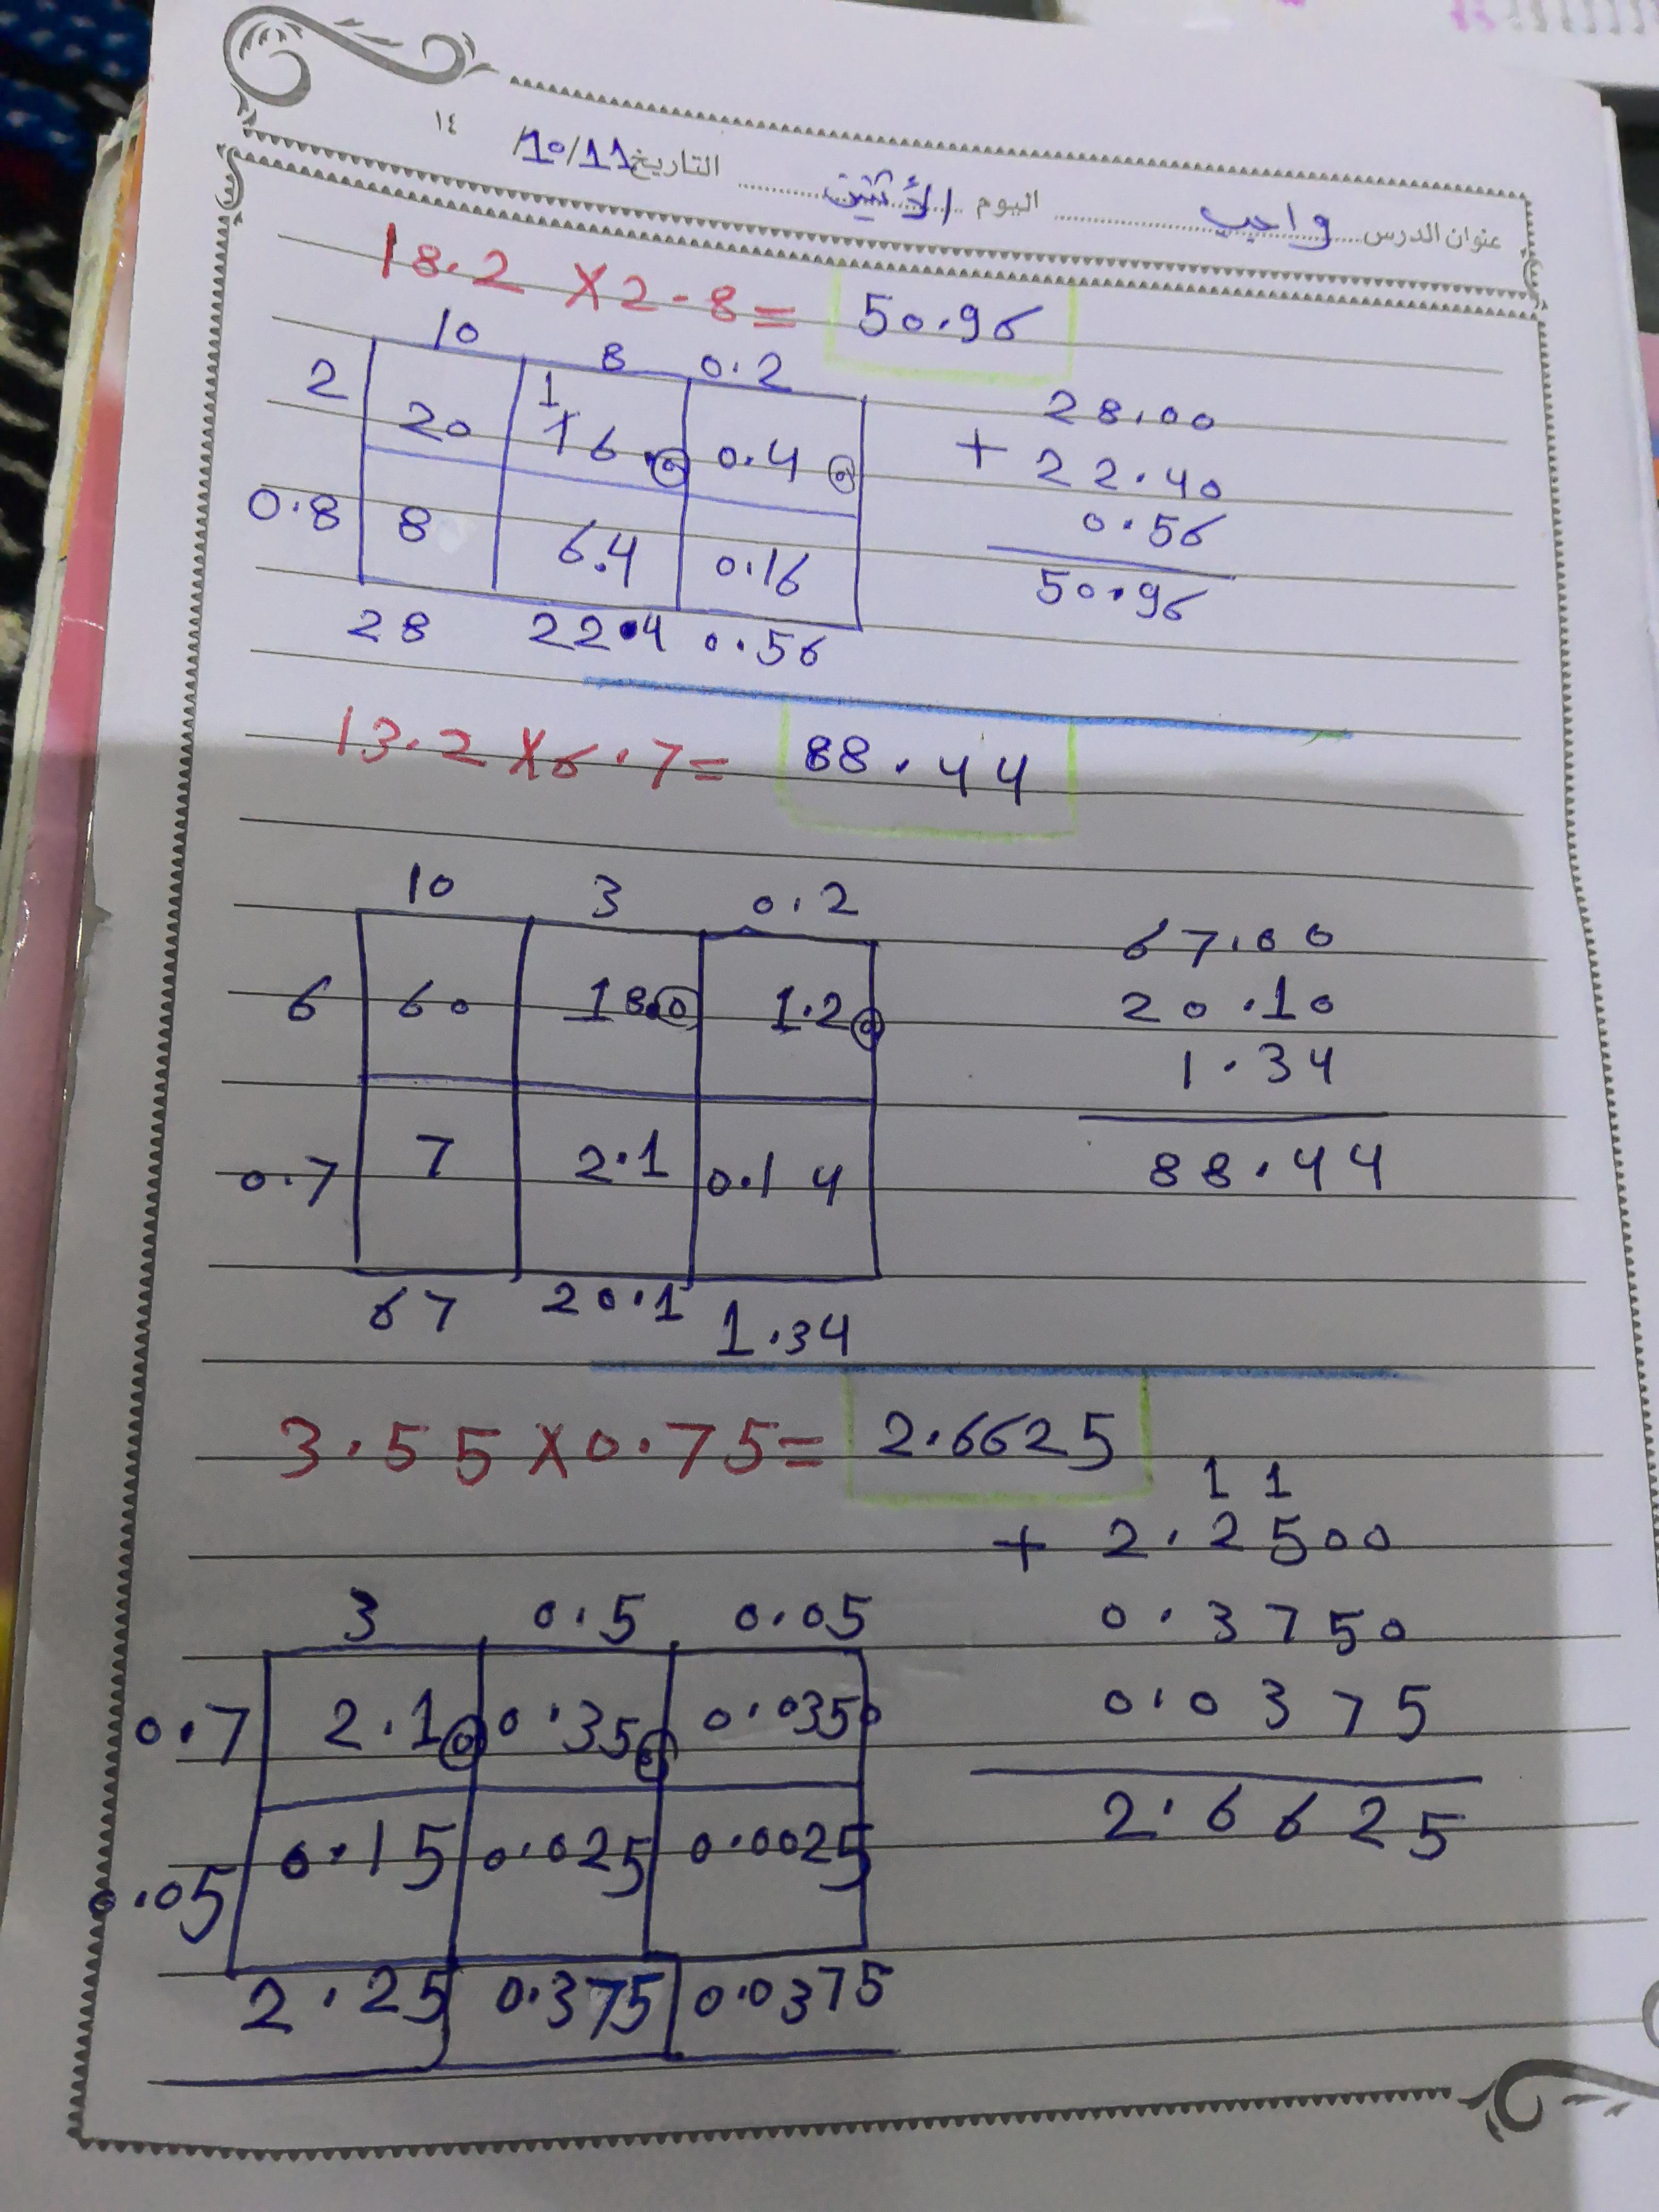 ١٤
عنوان الدرس واجب اليوم الأثنين التاريخ 10/11/
18.2 × 2.8 = 50.96
10 8 0.2
2 20 1 16.0 0.40
0.8 8 6.4 0.16
28 22.4 0.56
28.00
+ 22.40
0.56
50.96
13.2 × 6.7 = 88.44
10 3 0.2
6 60 18.0 1.20
0.7 7 2.1 0.14
67 20.1 1.34
67.00
20.10
1.34
88.44
3.55 × 0.75 = 2.6625
3 0.5 0.05
0.7 2.10 0.350 0.0350
0.05 0.15 0.025 0.0025
2.25 0.375 0.0375
1 1
+ 2.2500
0.3750
0.0375
2.6625